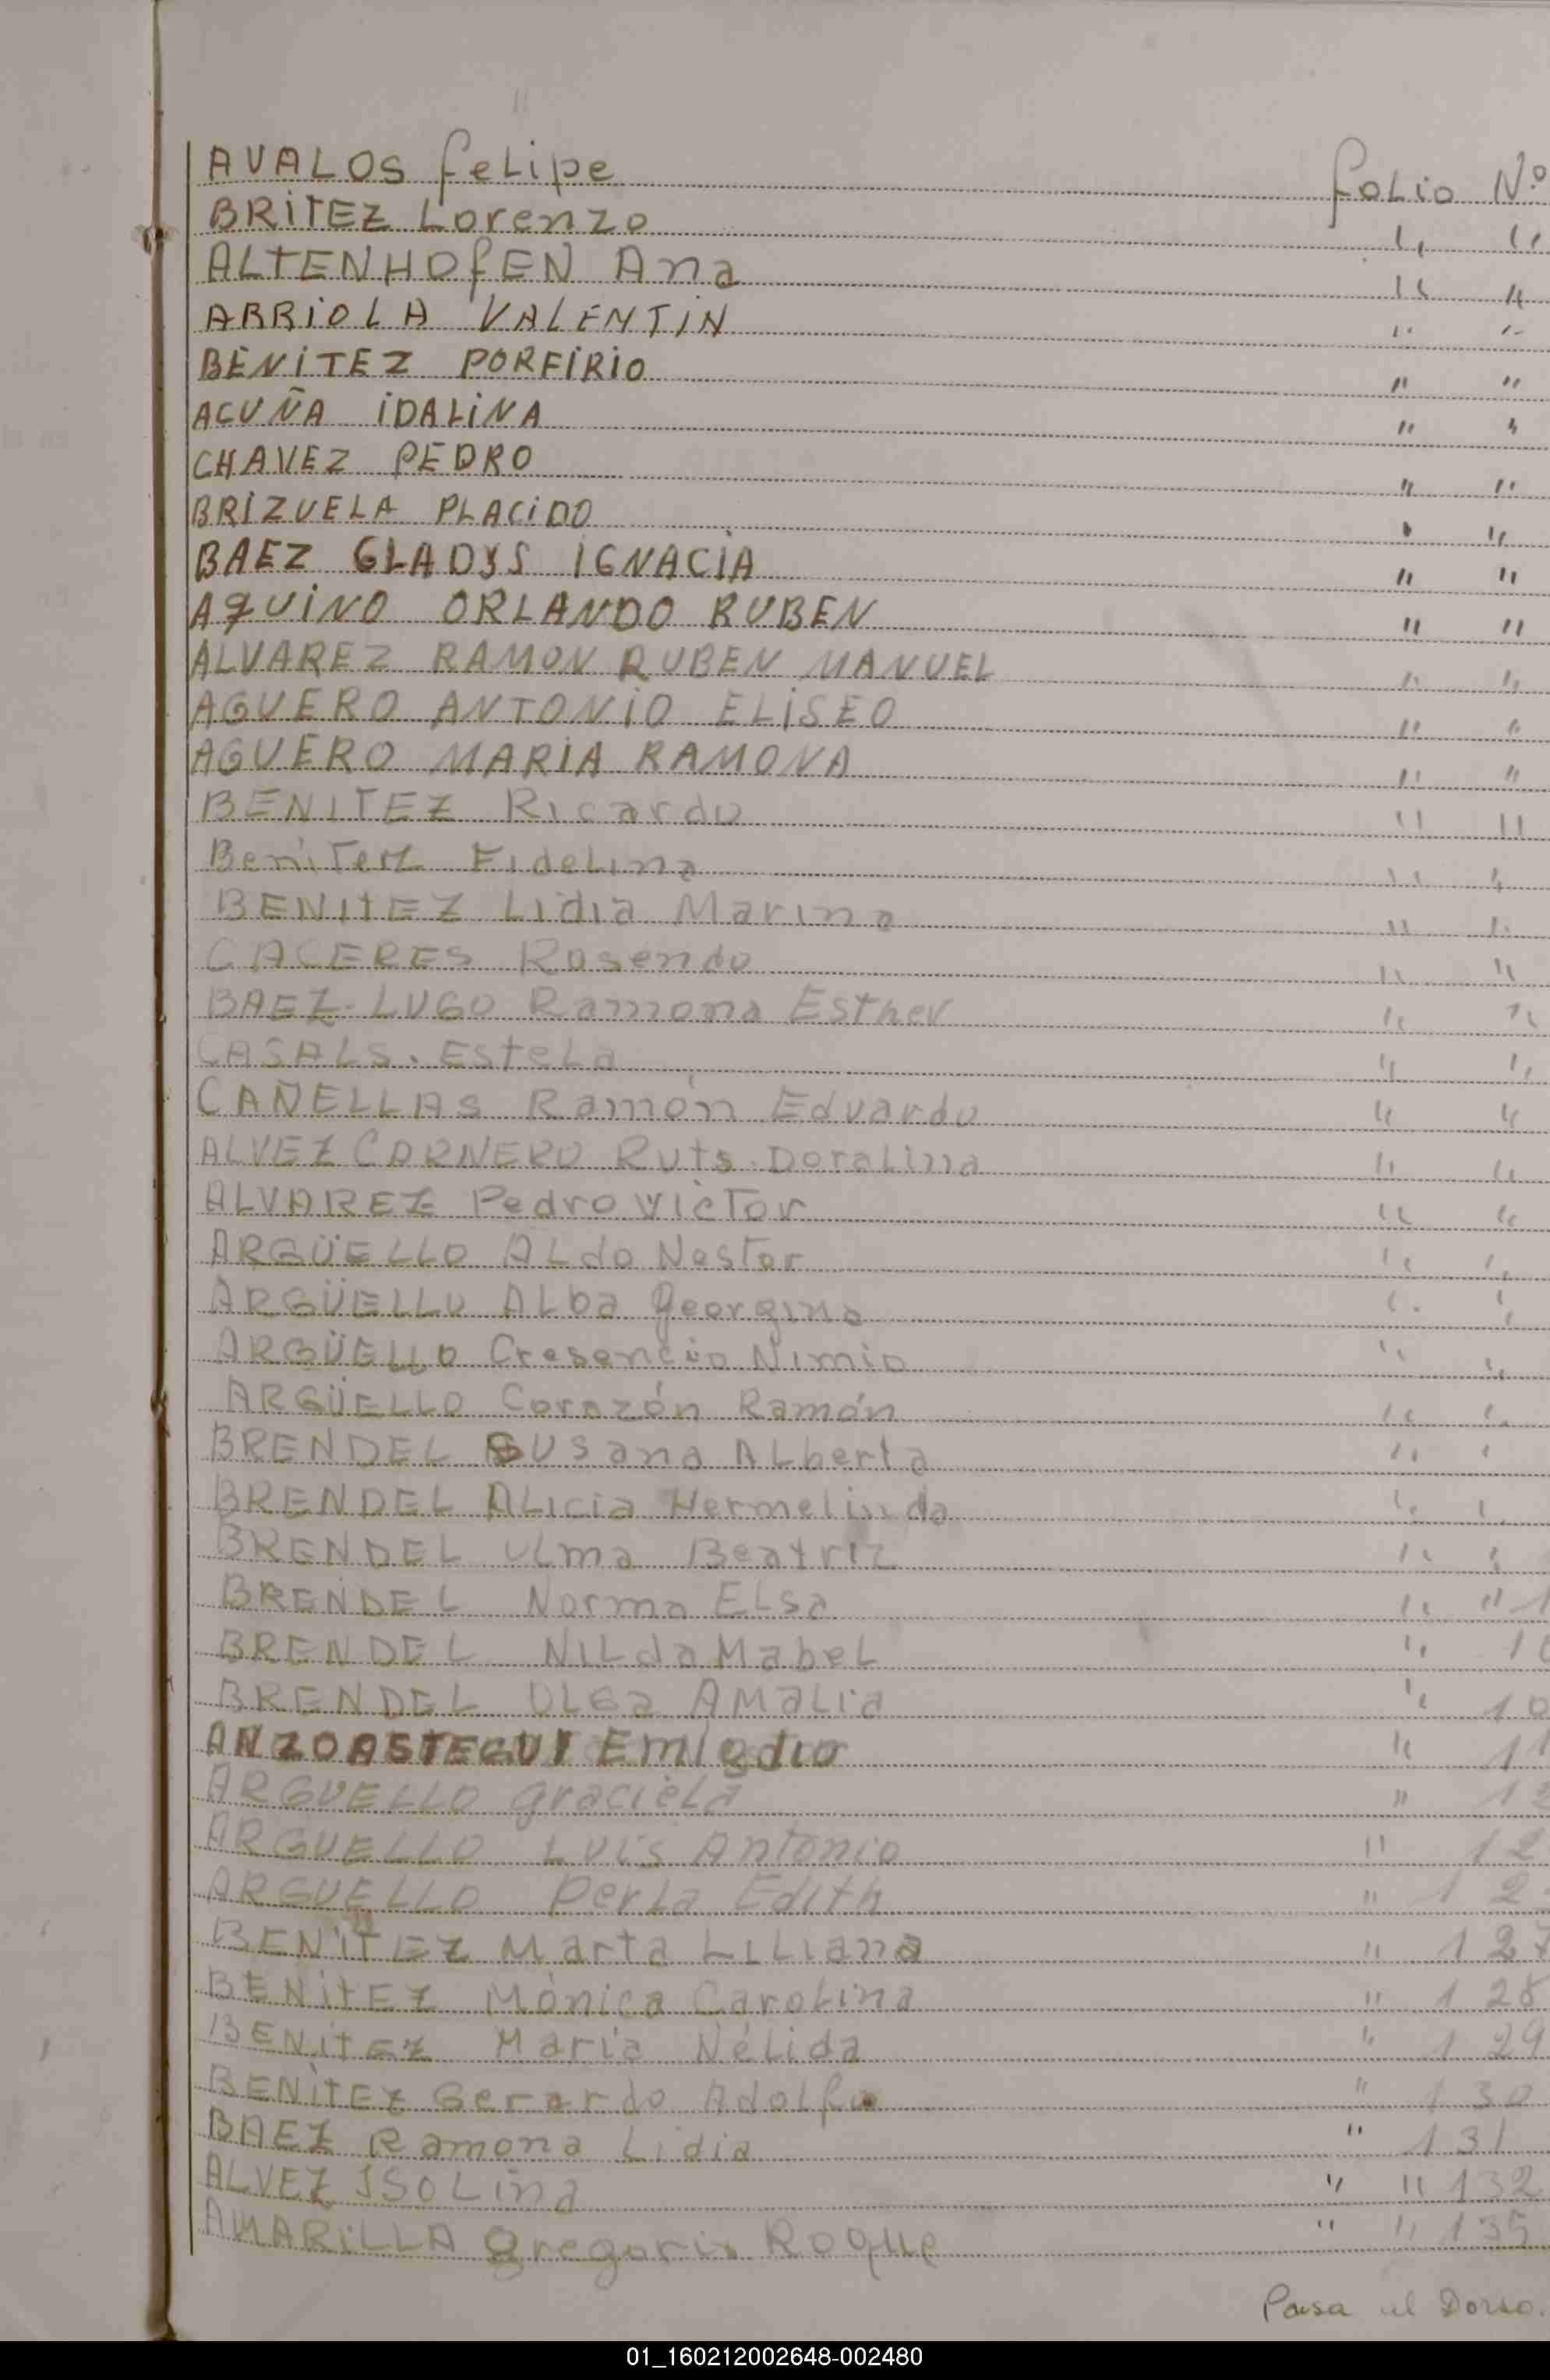 AVALOS Felipe folio Nº
BRITEZ Lorenzo " "
ALTENHOFEN Ana " "
ARRIOLA VALENTIN " "
BENITEZ PORFIRIO " "
ACUÑA IDALINA " "
CHAVEZ PEDRO " "
BRIZUELA PLACIDO " "
BAEZ GLADYS IGNACIA " "
AQUINO ORLANDO RUBEN " "
ALVAREZ RAMON RUBEN MANUEL " "
AGUERO ANTONIO ELISEO " "
AGUERO MARIA RAMONA " "
BENITEZ Ricardo " "
Benitez Fidelina " "
BENITEZ Lidia Marina " "
CACERES Rosendo " "
BAEZ-LUGO Ramona Esther " "
CASALS. Estela " "
CAÑELLAS Ramón Eduardo " "
ALVEZ CARNERO Ruts Doralina " "
ALVAREZ Pedro Victor " "
ARGÜELLO ALdo Nestor " "
ARGÜELLO ALba Georgina " "
ARGÜELLO Cresencio Nimio " "
ARGÜELLO Corazón Ramón " "
BRENDEL Susana ALberta " "
BRENDEL ALicia Hermelinda " "
BRENDEL ULma Beatriz " "
BRENDEL Norma ELsa " " 1
BRENDEL NILda MabeL " 10
BRENDEL OLGa AMaLia " 10
ANZOASTEGUI Emigdio " 11
ARGUELLO Graciela " 12
ARGUELLO Luis Antonio " 12
ARGUELLO Perla Edith " 12
BENITEZ Marta LiLiana " 127
BENITEZ Mónica Carolina " 128
BENITEZ María Nélida " 129
BENITEZ Gerardo Adolfo " 130
BAEZ Ramona Lidia " 131
ALVEZ ISOLina " " 132
AMARILLA Gregorio Roque " " 135
Pasa al Dorso.
01_160212002648-002480